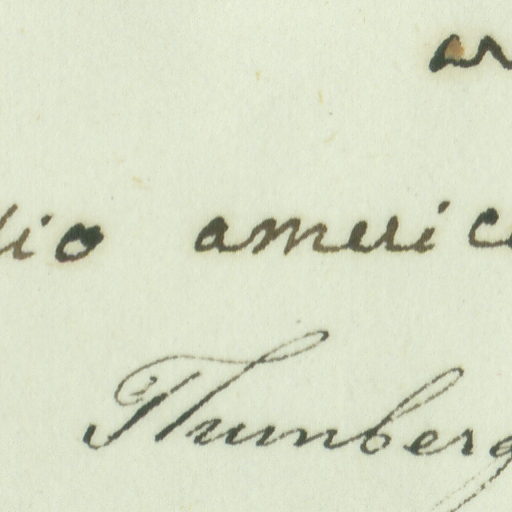 ar
io americ
Thunberg